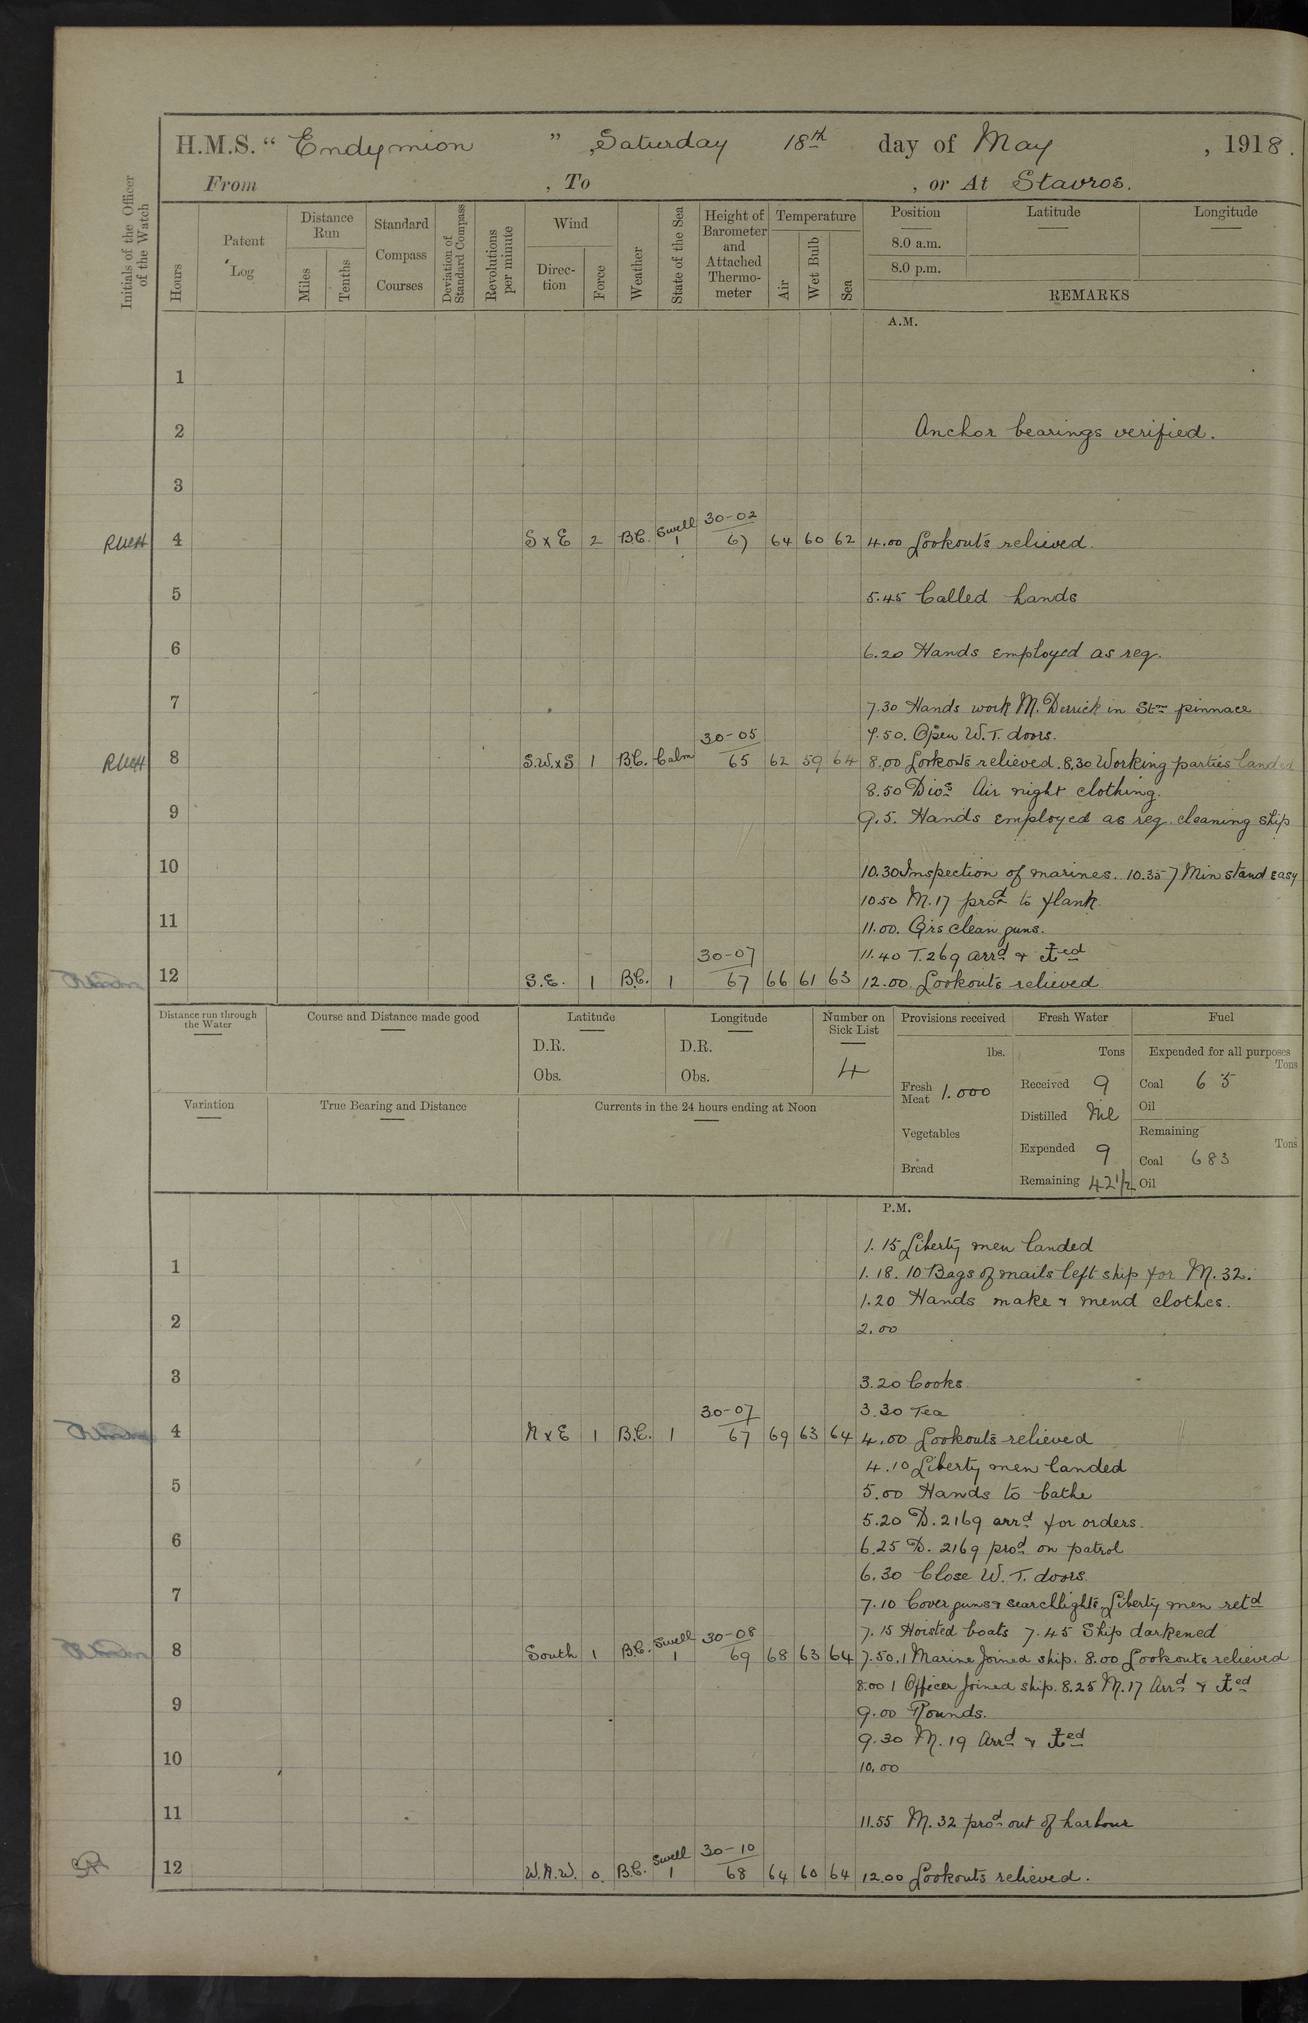 H.M.S. “ Endymion ” , Saturday 18th day of May , 1918.
From , To , or At Stavros.
Initials of the Officer of the Watch
Hours
Patent Log
Distance Run
Miles
Tenths
Standard Compass Courses
Deviation of Standard Compass
Revolutions per minute
Wind
Direc-tion
Force
Weather
State of the Sea
Height of Barometer and Attached Thermo-meter
Temperature
Air
Wet Bulb
Sea
Position
8.0 a.m.
8.0 p.m.
Latitude
Longitude
REMARKS
A.M.
1
2 Anchor bearings verified.
3
30-02
4 S x E 2 B.C. Swell 1 67 64 60 62 4.00 Lookouts relieved.
5 5.45 Called hands
6 6.20 Hands employed as req.
7 7.30 Hands work M. Derrick in Stm pinnace
30-05 7.50. Open W.T. doors.
8 S.W.xS 1 B.C. Calm 65 62 59 64 8.00 Lookouts relieved. 8.30 Working parties landed
8.50 Dios Air night clothing.
9 9.5. Hands employed as req. cleaning ship
10 10.30 Inspection of marines. 10.35 7 Min stand easy
10.50 M.17 procd to flank.
11 11.00. Qrs clean guns.
30-07 11.40 T.269 arrd & ⚓ed
12 S.E. 1 B.C. 1 67 66 61 63 12.00. Lookouts relieved
Distance run through the Water
Course and Distance made good
Latitude
D.R.
Obs.
Longitude
D.R.
Obs.
Number on Sick List
4
Provisions received
lbs.
Fresh Meat 1.000
Vegetables
Bread
Fresh Water
Tons
Received 9
Distilled Nil
Expended 9
Remaining 421/2
Fuel
Expended for all purposes
Tons
Coal 6 5
Oil
Remaining
Tons
Coal 683
Oil
Variation
True Bearing and Distance
Currents in the 24 hours ending at Noon
P.M.
1.15 Liberty men landed
1 1.18. 10 Bags of mails left ship for M.32.
1.20 Hands make & mend clothes.
2 2.00
3 3.20 Cooks
30-07 3.30 Tea
4 N x E 1 B.C. 1 67 69 63 64 4.00 Lookouts relieved
4.10 Liberty men landed
5 5.00 Hands to bathe
5.20 D.2169 arrd for orders.
6 6.25 D. 2169 procd on patrol
6.30 Close W.T. doors.
7 7.10 Cover guns & searchlights. Liberty men retd
30-08 7.15 Hoisted boats 7.45 Ship darkened
8 South 1 B.C. Swell 1 69 68 63 64 7.50. 1 Marine Joined ship. 8.00 Lookouts relieved
8.00 1 Officer Joined ship. 8.25 M.17 Arrd & ⚓ed
9 9.00 Rounds.
9.30 M.19 Arrd & ⚓ed
10 10.00
11 11.55 M.32 procd out of harbour
30-10
12 W.N.W. 0. B.C. Swell 1 68 64 60 64 12.00 Lookouts relieved.